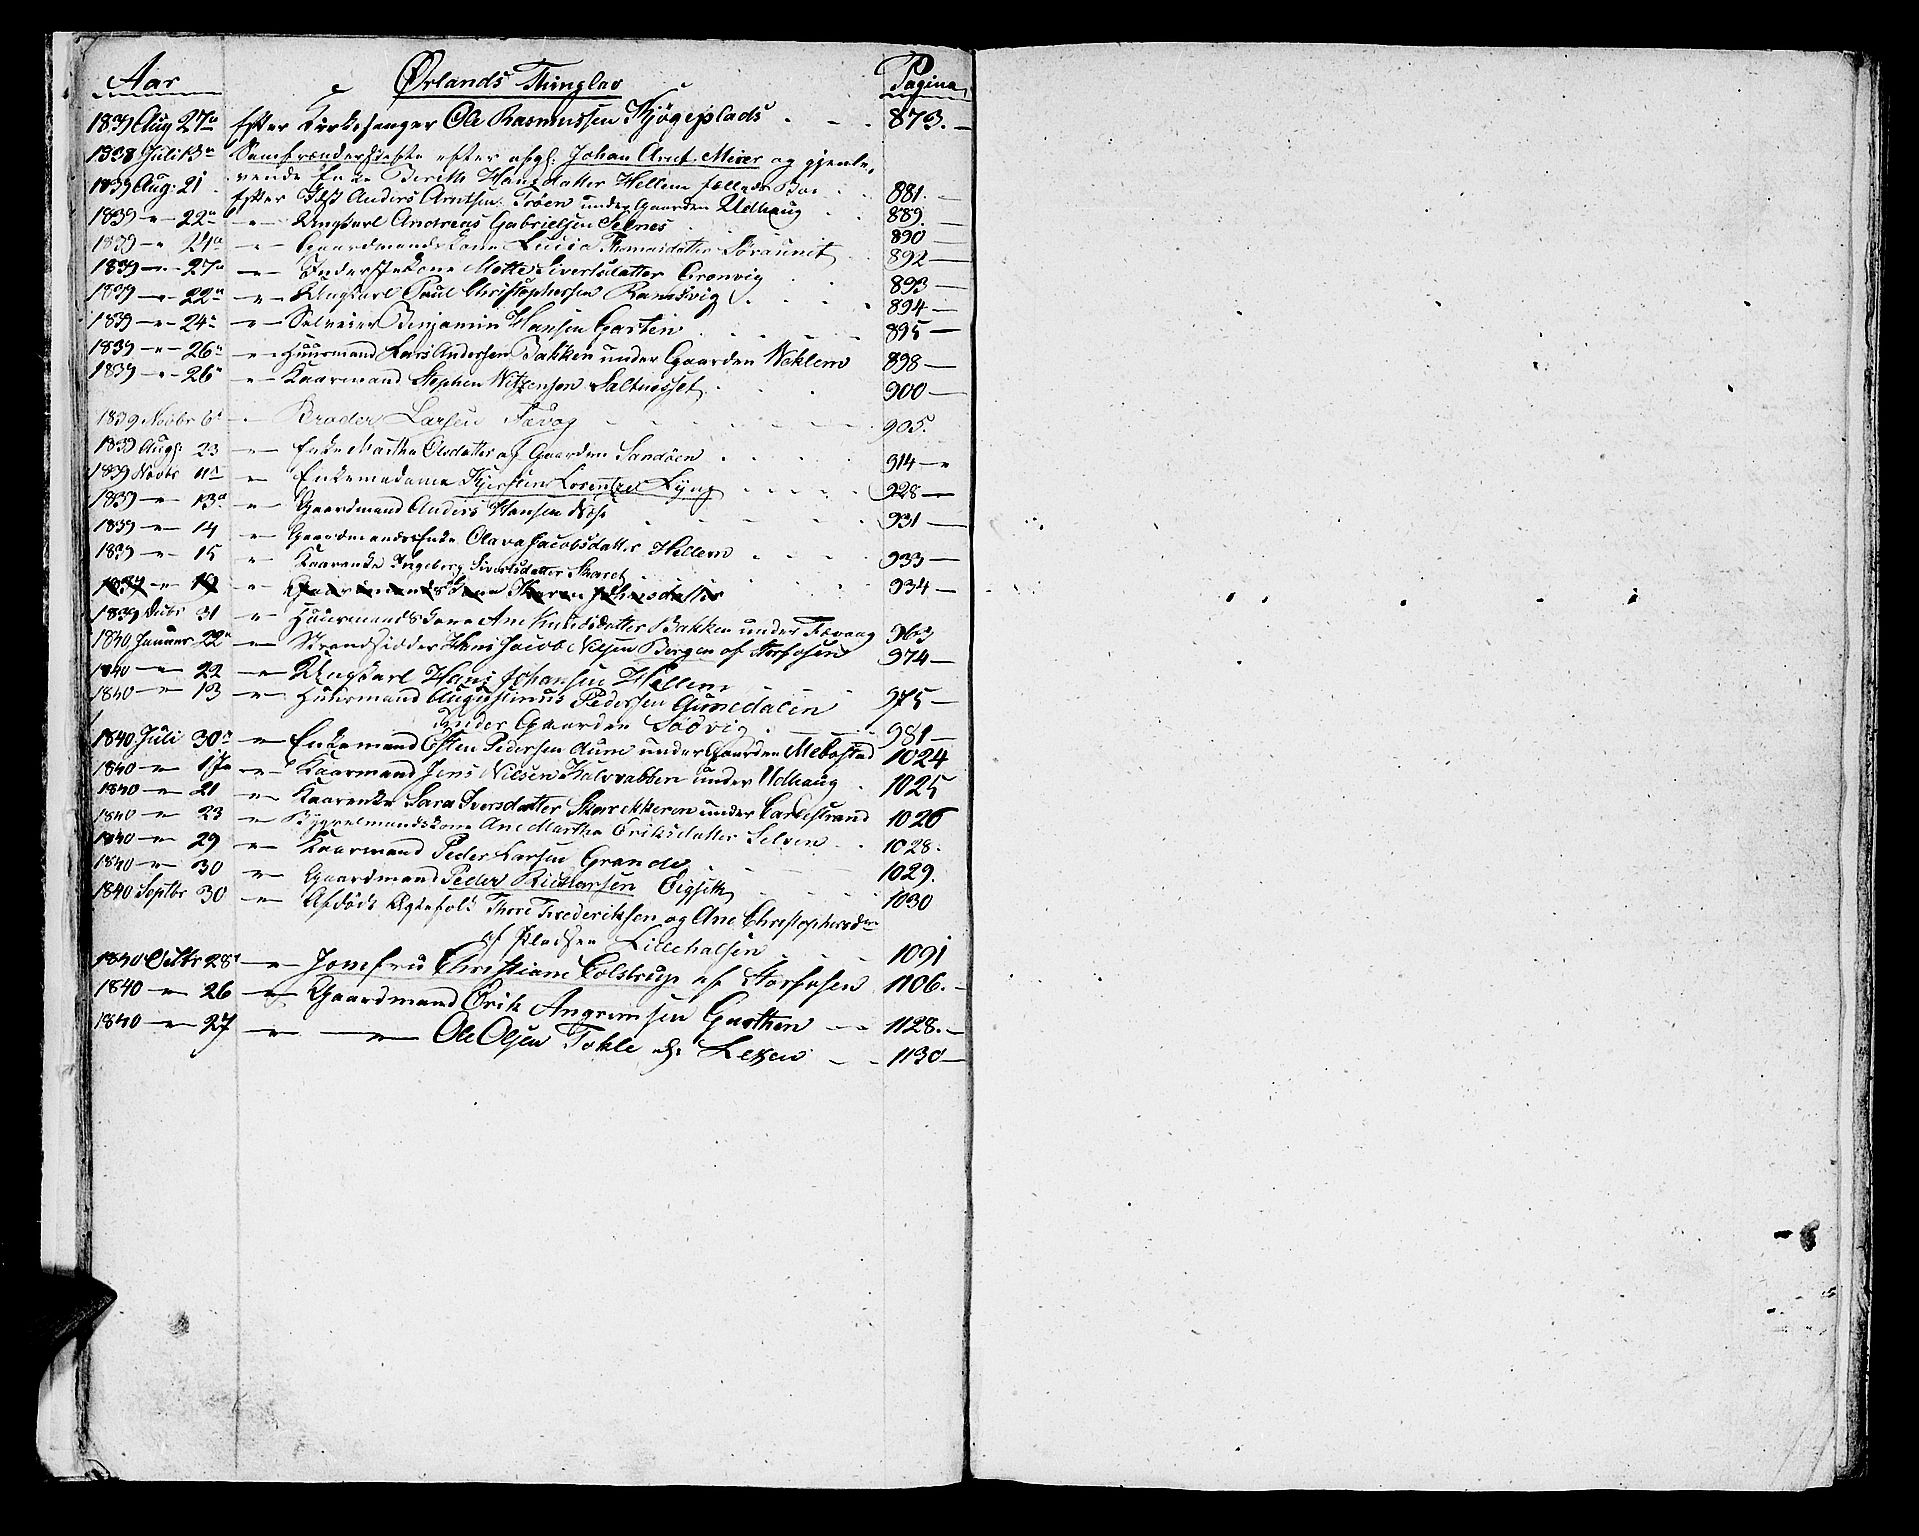 Aar Ørlands Thinglav Pagina
1839 Aug 27de Efter Kirkesanger Ole Rasmussen Kjøgeplads 873.
1838 Juli 13de Samfrændeskifte efter afgl. Johan Arnt Meier og gjenle-
vende Enke Berith Hansdatter Hellem fælleds Boe 881.
1839 Aug: 21 Efter Anders Arntsen Trøen under Gaarden Udhaug 889
1839 " 22de " Ungkarl Andreas Gabrielsen Selnes 890
1839 " 24de " Gaardmandskone Lucia Thomasdatter 892
1839 " 27de " Inderstekone Mette Sivertsdatter Grønvig 893
1839 " 22de " Ungkarl Paul Christophersen Ramsvig 894
1839 " 24de " Selveier Benjamin Hansen Garten 895
1839 " 26de " Huusmand Lars Andersen Bakken under Gaarden Veklem 898
1839 " 26de " Kaarmand Stephen Saltnesset 900
1839 Novbr 6te " Larsen Fævag 905.
1839 Augs: 23 " Enke Martha Olsdatter af Gaarden Sandøen 914
1839 Novbr 11te " Enkemadame Lorentze Lyng 928
1839 " 13de " Gaardmand Anders Hansen Næss 931
1839 " 14 " Gaardmandsenke Olava Jacobsdatter Hellem 933
1839 " 15 " Kaarenke Ingeborg Sivertsdatter 934
1839 " 19 " Gaardmandskone Karen Johnsdatter
1839 Decbr 31 " Huusmandskone Ane Knudsdatter Bakken under Fævaag 963
1840 Januar 22de " Strandsidder Hans Jacob Nilsen Borgen af Storfosen 974
1840 " 22 " Ungkarl Hans Johansen Hellem 975
1840 " 13 " Huusmand Augustinus Pedersen Aunedalen
under Gaarden Sødvig 981
1840 Juli 30te " Enkemand Østen Pedersen Aune under Gaarden Mebostad 1024
1840 " 17de " Kaarmand Jens Nilsen Kalvrabben under Udhaug 1025
1840 " 21 " Kaarenke Sara Iversdatter under Balsestrand 1026
1840 " 23 " Bygselmandskone Ane Martha Eriksdatter Selven 1028.
1840 " 29 " Kaarmand Peder Larsen Grande 1029.
1840 " 30 " Gaardmand Peder Rickartsen Opseth 1030
1840 Septbr 30 " Afdøde Ægtefolk Thore Frederiksen og Ane Christophersdtr
af Pladsen Lillehalsen 1091
1840 Octbr 28de " Jomfru Christiane Colstrup af Storfosen 1106.
1840 " 26 " Gaardmand Erik Angrimsen Garthen 1128.
1840 " 27 " " Ole Olsen Tokle Leksen 1130